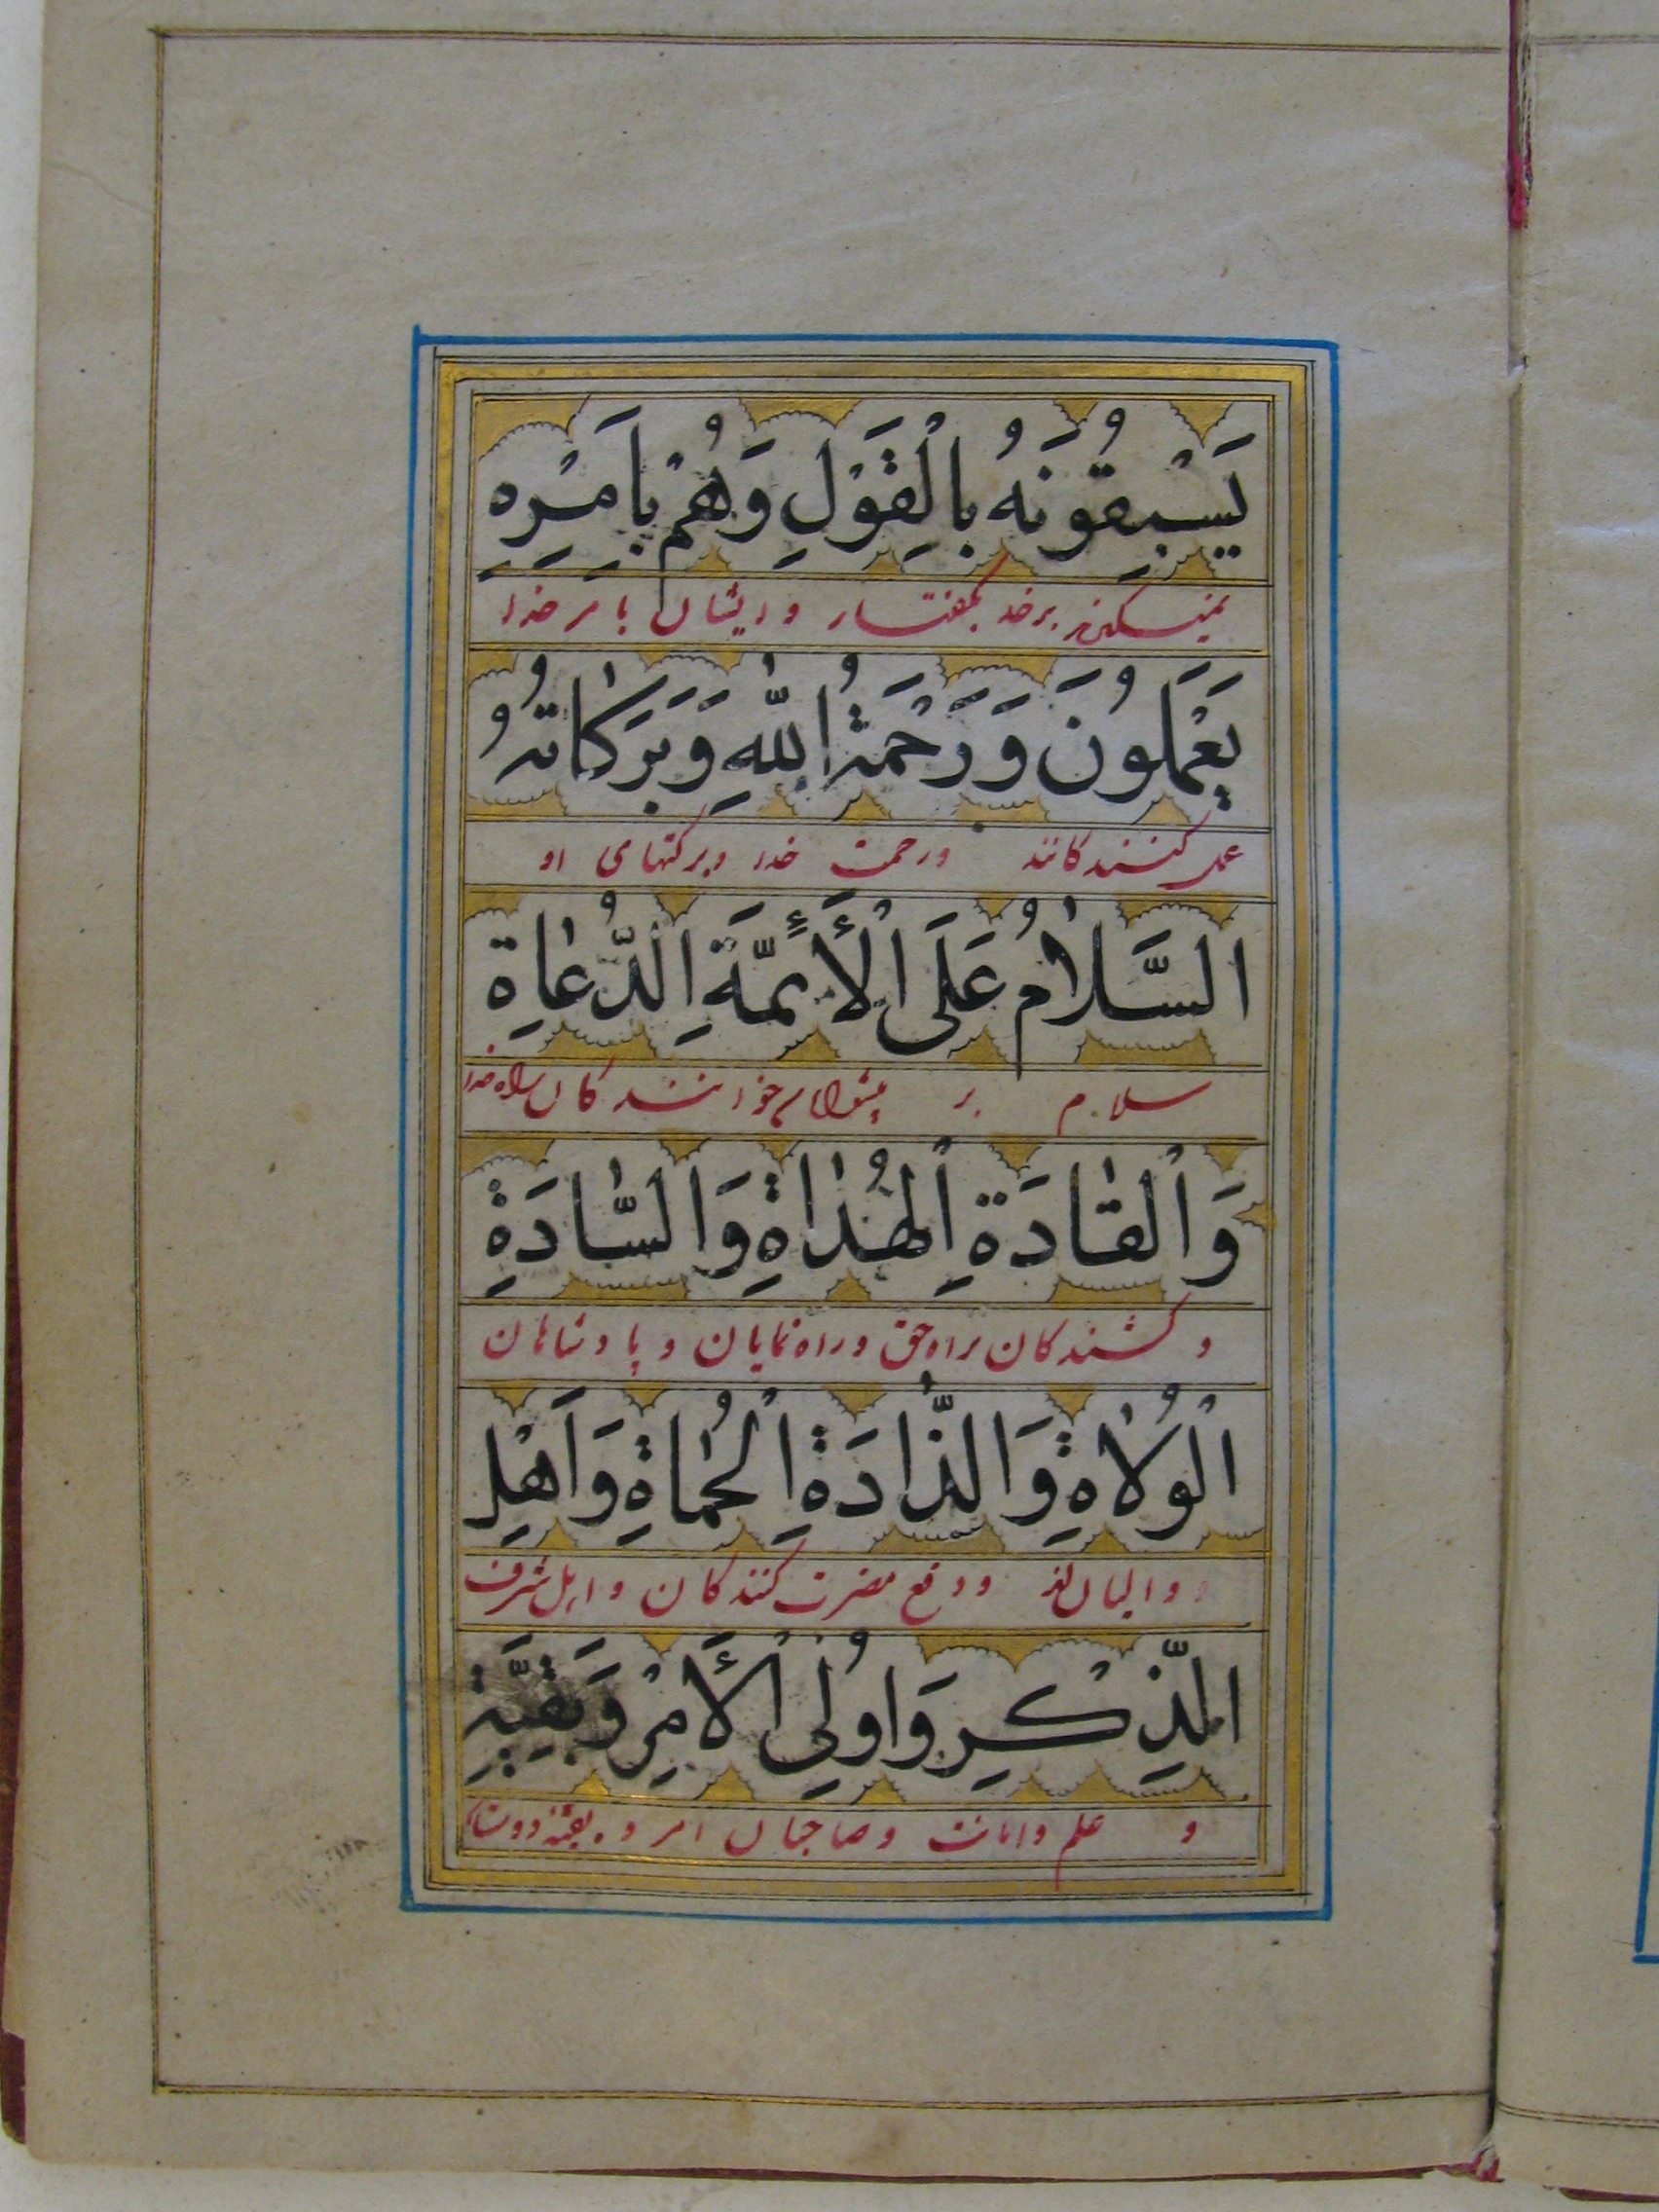 يَسْبِقُونَهُ بِالْقَوْلِ وَهُمْ بِاَمْرِهِ
برخدا بگفتار و ایشان بامر خدا
يَعْمَلُونَ وَرَحْمَةُ اللّٰهِ وَبَرَكٰاتُهُ
عمل کنندکانند ورحمت خدا وبرکتهای او
السَّلٰامُ عَلَى الْأَئِمَّةِ الدُّعٰاةِ
سلام بر پیشوایان خوانندکان براه خدا
وَالْقٰادَةِ الْهُدٰاةِ وَالسّٰادَةِ
و کشندکان براه حق و راه نمایان و پادشاهان
الْوُلٰاةِ وَالذّٰادَةِ الْحُمٰاةِ وَاَهْلِ
و والیان و دفع مضرت کنندکان و اهل شرف
الذِّكْرِ وَاُولِي الْأَمْرِ وَبَقِيَّةِ
و علم وامانت و صاحبان امر و بقیه